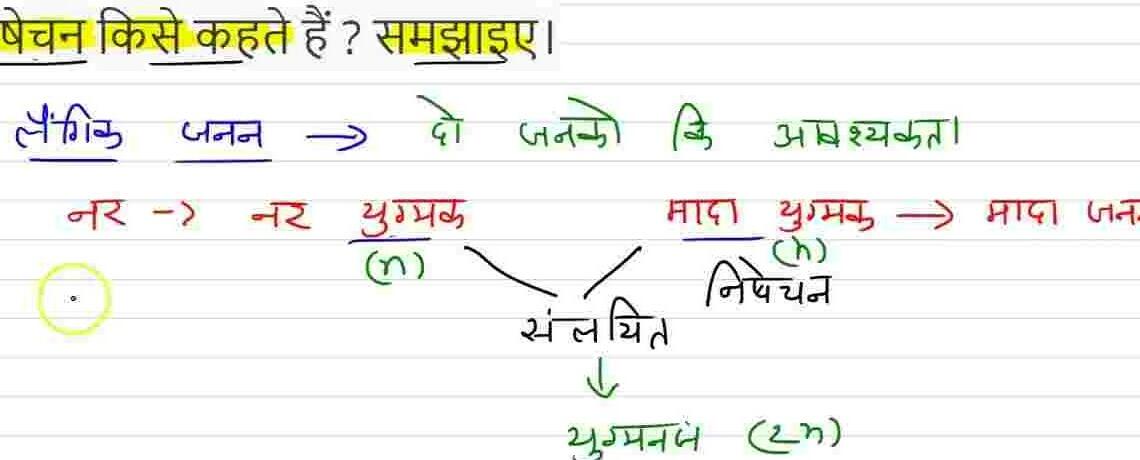 षेचन किसे कहते हैं ? समझाइए।
लैंगिक जनन → दो जनको कि आवश्यकता
नर -> नर युग्मक मादा युग्मक → मादा जन
(n) (n)
निषेचन
संलयित
↓
युग्मनज (2n)